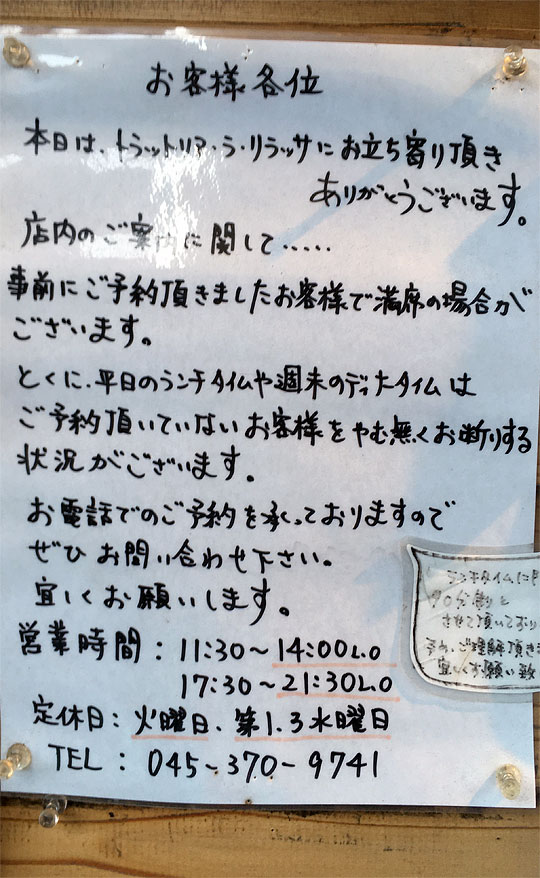 お客様各位
本日は、トラットリア・ラ・リラッサにお立ち寄り頂き
ありがとうございます。
店内のご案内に関して.....
事前にご予約頂きましたお客様で満席の場合が
ございます。
とくに、平日のランチタイムや週末のディナータイムは
ご予約頂いていないお客様をやむ無くお断りする
状況がございます。
お電話でのご予約を承っておりますので
ぜひお問い合わせ下さい。
宜しくお願いします。
営業時間：11:30～14:00L.O
17:30～21:30L.O
定休日：火曜日、第1.3水曜日
TEL：045-370-9741
ランチタイムに
90分制と
させて頂いており
予め、ご理解頂き
宜しくお願い致